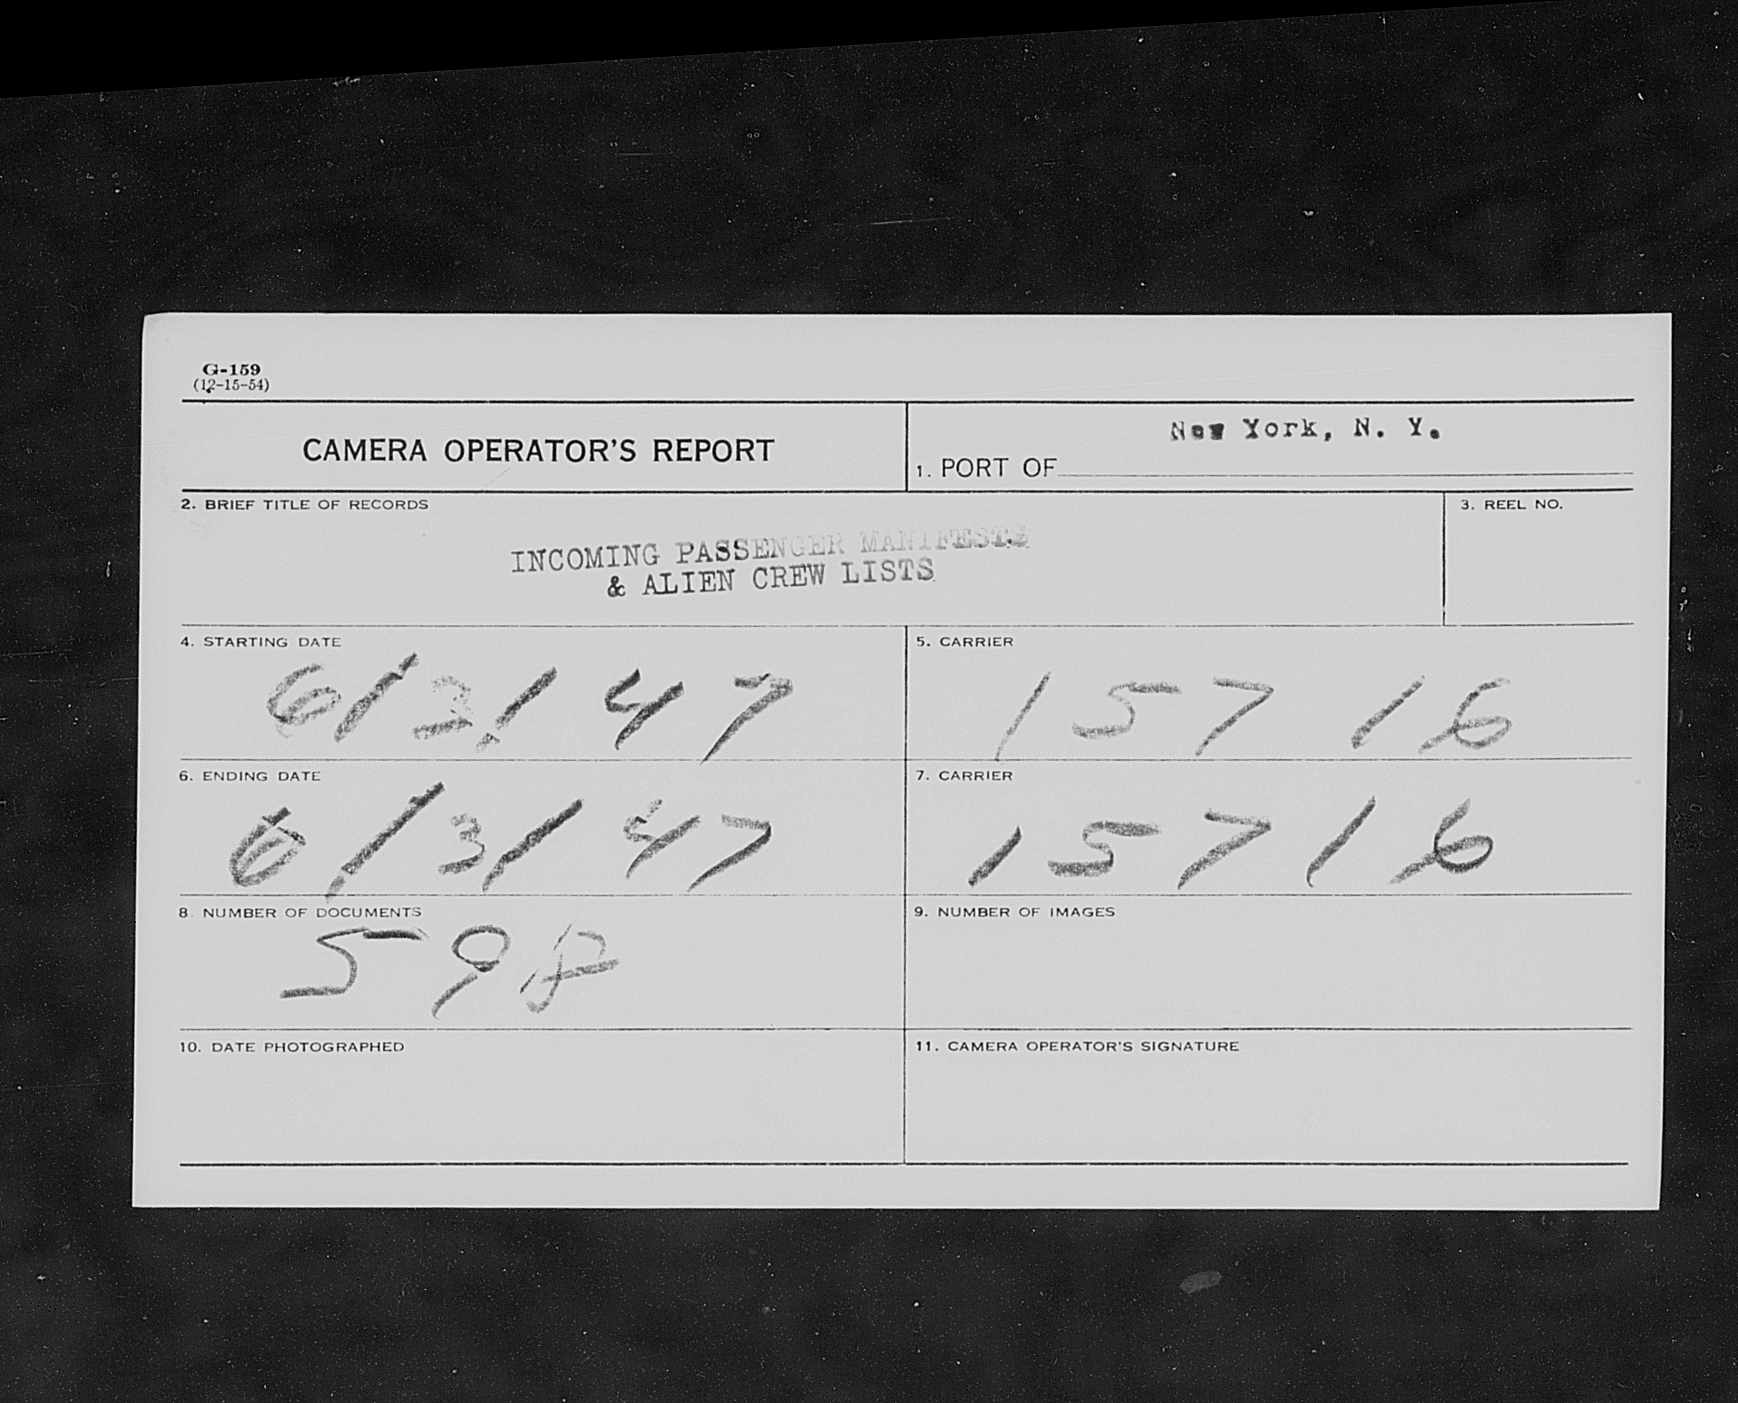 G-159
(12-15-54)
CAMERA OPERATOR'S REPORT
New York, N. Y.
1. PORT OF
2. BRIEF TITLE OF RECORDS
3. REEL NO.
INCOMING PASSENGER MANIFESTS
& ALIEN CREW LISTS
4. STARTING DATE
5. CARRIER
6/3/47
15716
6. ENDING DATE
7. CARRIER
6/3/47
15716
8. NUMBER OF DOCUMENTS
9. NUMBER OF IMAGES
598
10. DATE PHOTOGRAPHED
11. CAMERA OPERATOR'S SIGNATURE